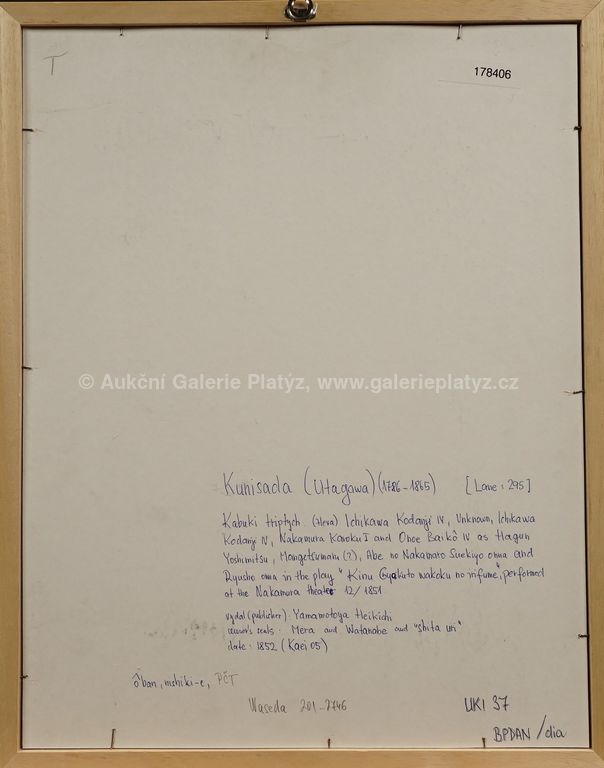 T
178406
© Aukční Galerie Platýz, www.galerieplatyz.cz
Kunisada (Utagawa) (1786-1865) [Lane: 295]
Kabuki triptych. (zleva) Ichikawa Kodanji IV, Unknown, Ichikawa
Kodanji IV, Nakamura Kanoku I and Onoe Baikô IV as Hagun
Yoshimitsu, Mangetsumaru (?), Abe no Nakamaro Suekiyo onna and
Ryusho onna in the play "Kinu Gyokuto wakoku no irifune", performed
at the Nakamura theatre 12/1851
vydal (publisher): Yamamotoya Heikichi
censor's seals: Mera and Watanabe and "shita uri"
date: 1852 (Kaei 05)
ôban, nishiki-e, PČT
Waseda 201-2746
UKI 37
BPDAN/dia